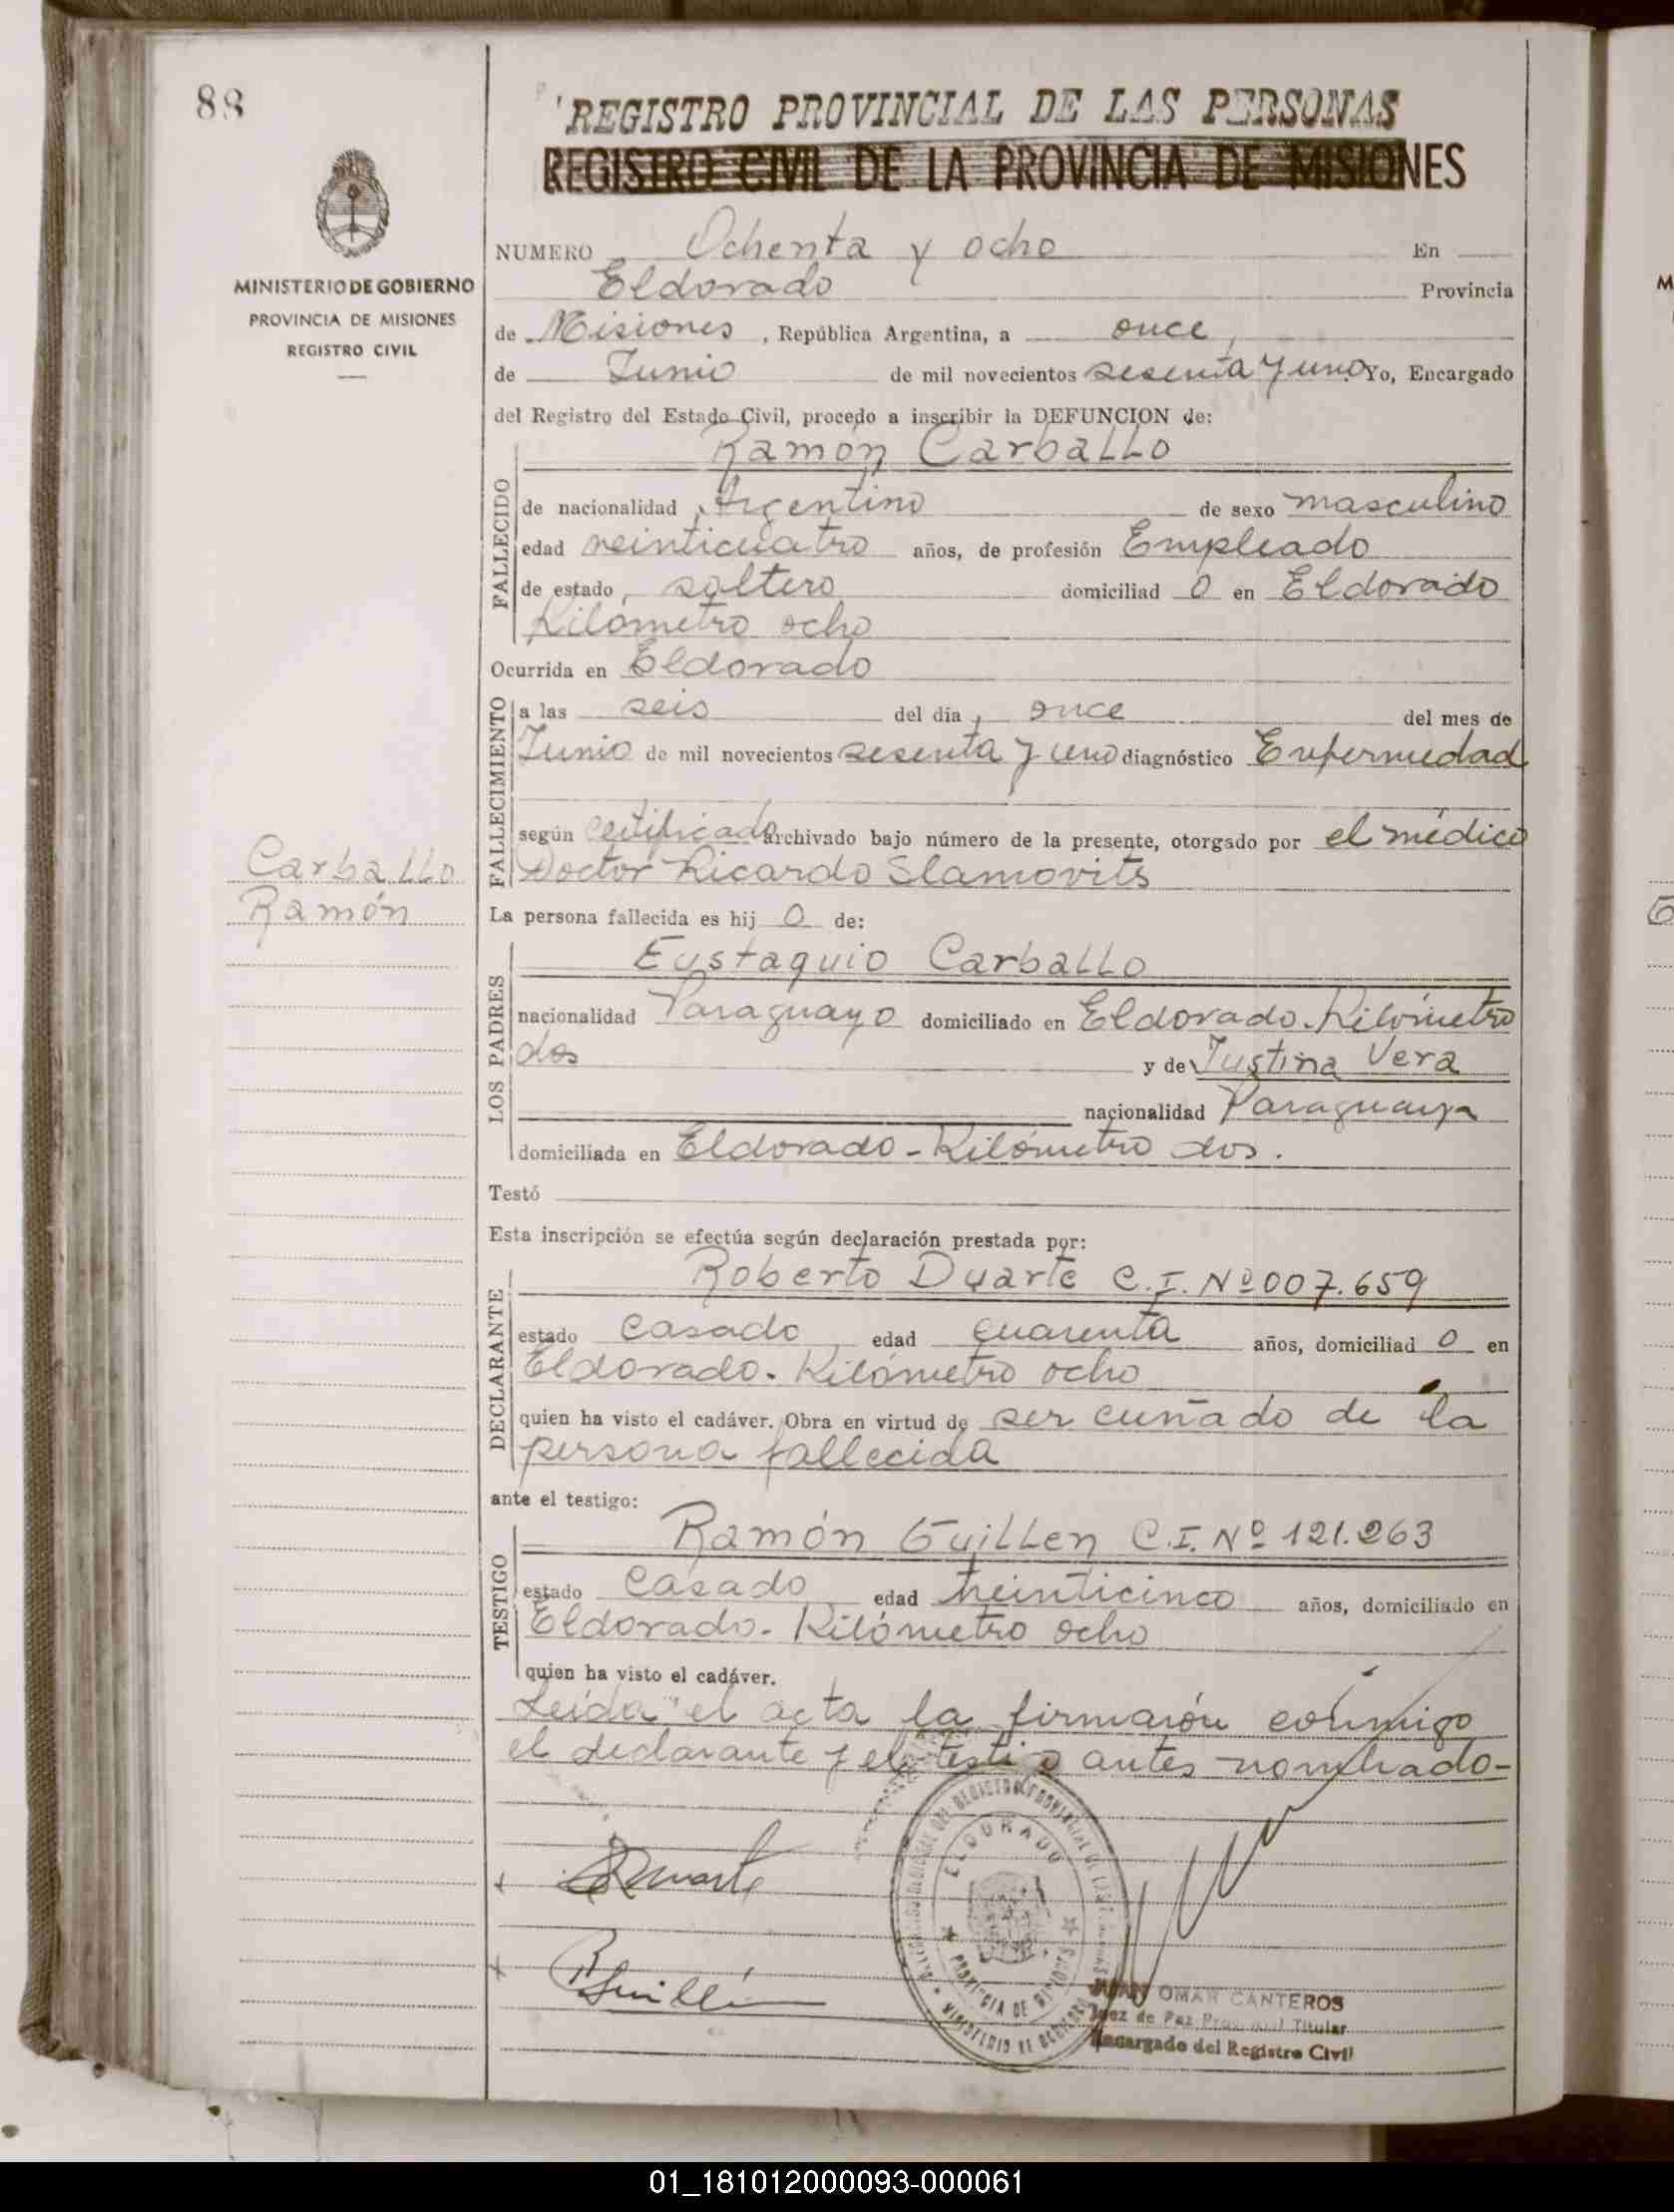 88
MINISTERIO DE GOBIERNO
PROVINCIA DE MISIONES
REGISTRO CIVIL
Carballo
Ramón
REGISTRO PROVINCIAL DE LAS PERSONAS
REGISTRO CIVIL DE LA PROVINCIA DE MISIONES
NUMERO Ochenta y ocho En
Eldorado Provincia
de Misiones, República Argentina, a once,
de Junio de mil novecientos sesenta y uno Yo, Encargado
del Registro del Estado Civil, procedo a inscribir la DEFUNCION de:
Ramón Carballo
FALLECIDO
de nacionalidad Argentino de sexo masculino
edad veinticuatro años, de profesión Empleado
de estado, soltero domiciliad o en Eldorado
Kilómetro ocho
Ocurrida en Eldorado
FALLECIMIENTO
a las seis del día, once del mes de
Junio de mil novecientos sesenta y uno diagnóstico Enfermedad
según certificado archivado bajo número de la presente, otorgado por el médico
Doctor Ricardo Slamovits
La persona fallecida es hij o de:
LOS PADRES
Eustaquio Carballo
nacionalidad Paraguayo domiciliado en Eldorado. Kilómetro
dos y de Justina Vera
nacionalidad Paraguaya
domiciliada en Eldorado - Kilómetro dos.
Testó
Esta inscripción se efectúa según declaración prestada por:
DECLARANTE
Roberto Duarte C.I. Nº 007.659
estado casado edad cuarenta años, domiciliad o en
Eldorado. Kilómetro ocho
quien ha visto el cadáver. Obra en virtud de ser cuñado de la
persona fallecida
ante el testigo:
TESTIGO
Ramón Guillen C.I. Nº 121.263
estado Casado edad veinticinco años, domiciliado en
Eldorado. Kilómetro ocho
quien ha visto el cadáver.
Leída el acta la firmarón conmigo
el declarante y el testigo antes nombrado-
Duarte
R Guillén
ELDORADO
PROVINCIA DE MISIONES
JUAN OMAR CANTEROS
Juez de Paz Provincial Titular
Encargado del Registro Civil
01_181012000093-000061